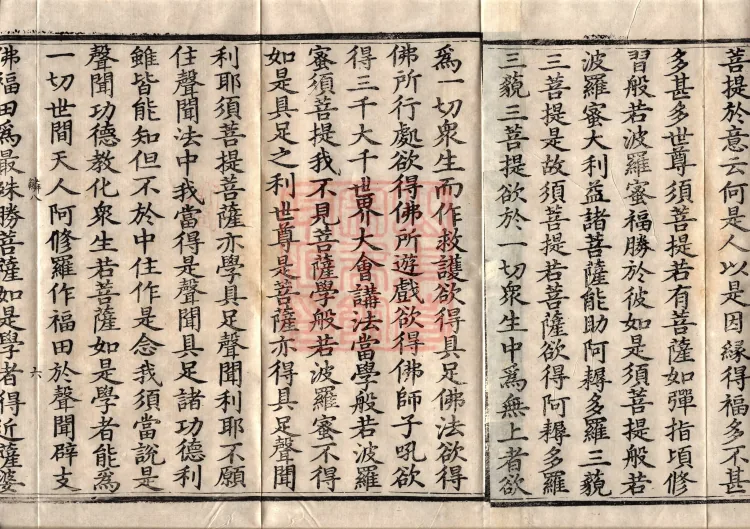 菩提於意云何是人以是因緣得福多不甚
多甚多世尊須菩提若有菩薩如彈指頃修
習般若波羅蜜福勝於彼如是須菩提般若
波羅蜜大利益諸菩薩能助阿耨多羅三藐
三菩提是故須菩提若菩薩欲得阿耨多羅
三藐三菩提欲於一切衆生中爲無上者欲
爲一切衆生而作救護欲得具足佛法欲得
佛所行處欲得佛所遊戲欲得佛師子吼欲
得三千大千世界大會講法當學般若波羅
蜜須菩提我不見菩薩學般若波羅蜜不得
如是具足之利世尊是菩薩亦得具足聲聞
利耶須菩提菩薩亦學具足聲聞利耶不願
住聲聞法中我當得是聲聞具足諸功德利
雖皆能知但不於中住作是念我須當說是
聲聞功德教化衆生若菩薩如是學者能爲
一切世間天人阿修羅作福田於聲聞辟支
六
佛福田爲最殊勝菩薩如是學者得近薩婆